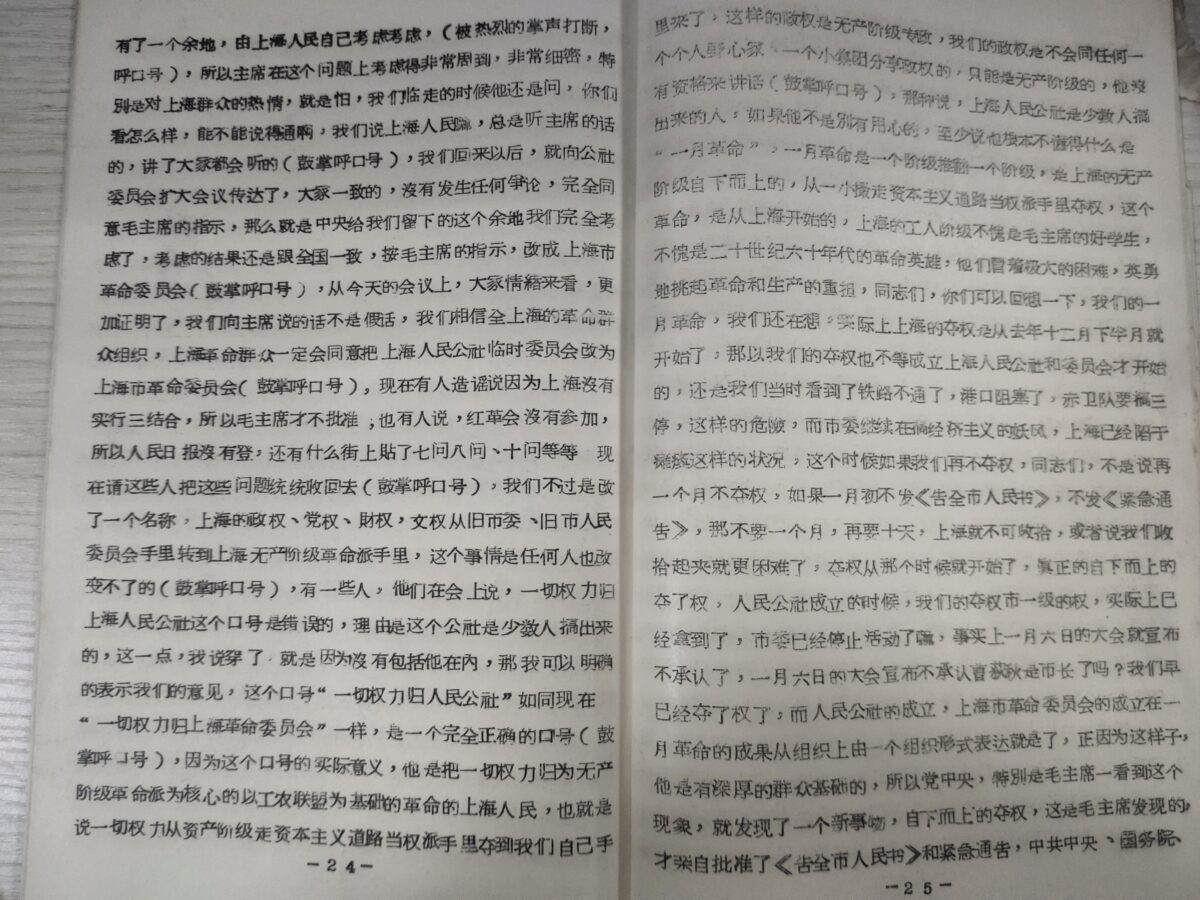 有了一个余地，由上海人民自己考虑考虑，（被热烈的掌声打断，
呼口号），所以主席在这个问题上考虑得非常周到，非常细密，特
别是对上海群众的热情，就是怕，我们临走的时候他还是问，你们
看怎么样，能不能说得通啊，我们说上海人民嘛，总是听主席的话
的，讲了大家都会听的（鼓掌呼口号），我们回来以后，就向公社
委员会扩大会议传达了，大家一致的，沒有发生任何争论，完全同
意毛主席的指示，那么就是中央给我们留下的这个余地我们完全考
虑了，考虑的结果还是跟全国一致，按毛主席的指示，改成上海市
革命委员会（鼓掌呼口号），从今天的会议上，大家情緒来看，更
加证明了，我们向主席说的话不是假话，我们相信全上海的革命群
众组织，上海革命群众一定会同意把上海人民公社临时委员会改为
上海市革命委员会（鼓掌呼口号），现在有人造谣说因为上海沒有
实行三结合，所以毛主席才不批准；也有人说，红革会沒有参加，
所以人民日报沒有登，还有什么街上貼了七问八问、十问等等 现
在请这些人把这些问题统统收回去（鼓掌呼口号），我们不过是改
了一个名称，上海的政权、党权、財权，文权从旧市委、旧市人民
委员会手里转到上海无产阶级革命派手里，这个事情是任何人也改
变不了的（鼓掌呼口号），有一些人，他们在会上说，一切权力归
上海人民公社这个口号是错误的，理由是这个公社是少数人搞出来
的，这一点，我说穿了，就是因为沒有包括他在內，那我可以明确
的表示我们的意见，这个口号“一切权力归人民公社”如同现在
“一切权力归上海革命委员会”一样，是一个完全正确的口号（鼓
掌呼口号），因为这个口号的实际意义，他是把一切权力归为无产
阶级革命派为核心的以工农联盟为基础的革命的上海人民，也就是
说一切权力从资产阶级走资本主义道路当权派手里夺到我们自己手
－24－
里来了，这样的政权是无产阶级专政，我们的政权是不会同任何一
个个人野心家、一个小集团分享政权的，只能是无产阶级的，他沒
有资格来讲话（鼓掌呼口号），那种说，上海人民公社是少数人搞
出来的人，如果他不是別有用心的，至少说他根本不懂得什么是
“一月革命”，一月革命是一个阶级推翻一个阶级，是上海的无产
阶级自下而上的，从一小撮走资本主义道路当权派手里夺权，这个
革命，是从上海开始的，上海的工人阶级不愧是毛主席的好学生，
不愧是二十世纪六十年代的革命英雄，他们冒着极大的困难，英勇
地挑起革命和生产的重担，同志们，你们可以回想一下，我们的一
月革命，我们还在想，实际上上海的夺权是从去年十二月下半月就
开始了，那以我们的夺权也不等成立上海人民公社和委员会才开始
的，还是我们当时看到了铁路不通了，港口阻塞了，赤卫队要搞三
停，这样的危险，而市委继续在搞经济主义的妖风，上海已经陷于
瘫痪这样的状况，这个时候如果我们再不夺权，同志们，不是说再
一个月不夺权，如果一月初不发《告全市人民书》，不发《紧急通
告》，那不要一个月，再要十天，上海就不可收拾，或者说我们收
拾起来就更困难了，夺权从那个时候就开始了，真正的自下而上的
夺了权，人民公社成立的时候，我们的夺权市一级的权，实际上已
经拿到了，市委已经停止活动了嘛，事实上一月六日的大会就宣布
不承认了，一月六日的大会宣布不承认曹荻秋是市长了吗？我们早
已经夺了权了，而人民公社的成立，上海市革命委员会的成立在一
月革命的成果从组织上由一个组织形式表达就是了，正因为这样子，
他是有深厚的群众基础的，所以党中央，特別是毛主席一看到这个
现象，就发现了一个新事物，自下而上的夺权，这是毛主席发现的，
才亲自批准了《告全市人民书》和紧急通告，中共中央、国务院、
－25－